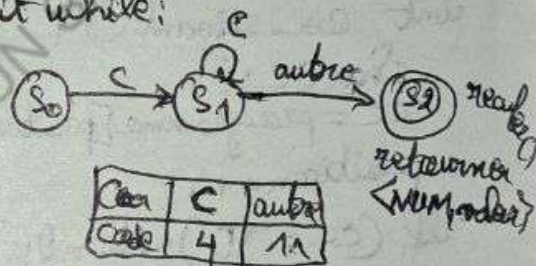 while:
C
C
autre
S0
S1
S2
reculer()
retourner
<NUM,valeur>
Car C autre
Code 4 11